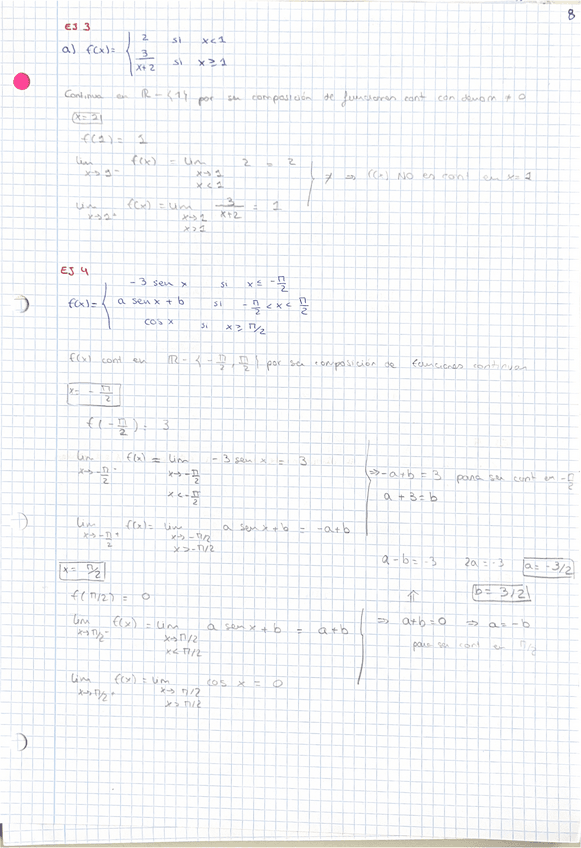 8
EJ 3
a) f(x) = { 2 si x < 1
3/(x+2) si x ≥ 1
Continua en ℝ - {1} por ser composición de funciones cont con denom ≠ 0
x = 1
f(1) = 1
lim x→1⁻ f(x) = lim x→1 x<1 2 = 2
≠ ⇒ f(x) NO es cont en x = 1
lim x→1⁺ f(x) = lim x→1 x>1 3/(x+2) = 1
EJ 4
f(x) = { -3 sen x si x ≤ -π/2
a sen x + b si -π/2 < x < π/2
cos x si x ≥ π/2
f(x) cont en ℝ - {-π/2, π/2} por ser composición de funciones continuas
x = -π/2
f(-π/2) = 3
lim x→-π/2⁻ f(x) = lim x→-π/2 x<-π/2 -3 sen x = 3
⇒ -a+b = 3 para ser cont en -π/2
a + 3 = b
lim x→-π/2⁺ f(x) = lim x→-π/2 x>-π/2 a sen x + b = -a+b
a - b = -3 2a = -3 a = -3/2
x = π/2
b = 3/2
f(π/2) = 0
⇑
lim x→π/2⁻ f(x) = lim x→π/2 x<π/2 a sen x + b = a+b
⇒ a+b = 0 ⇒ a = -b
para ser cont en π/2
lim x→π/2⁺ f(x) = lim x→π/2 x>π/2 cos x = 0